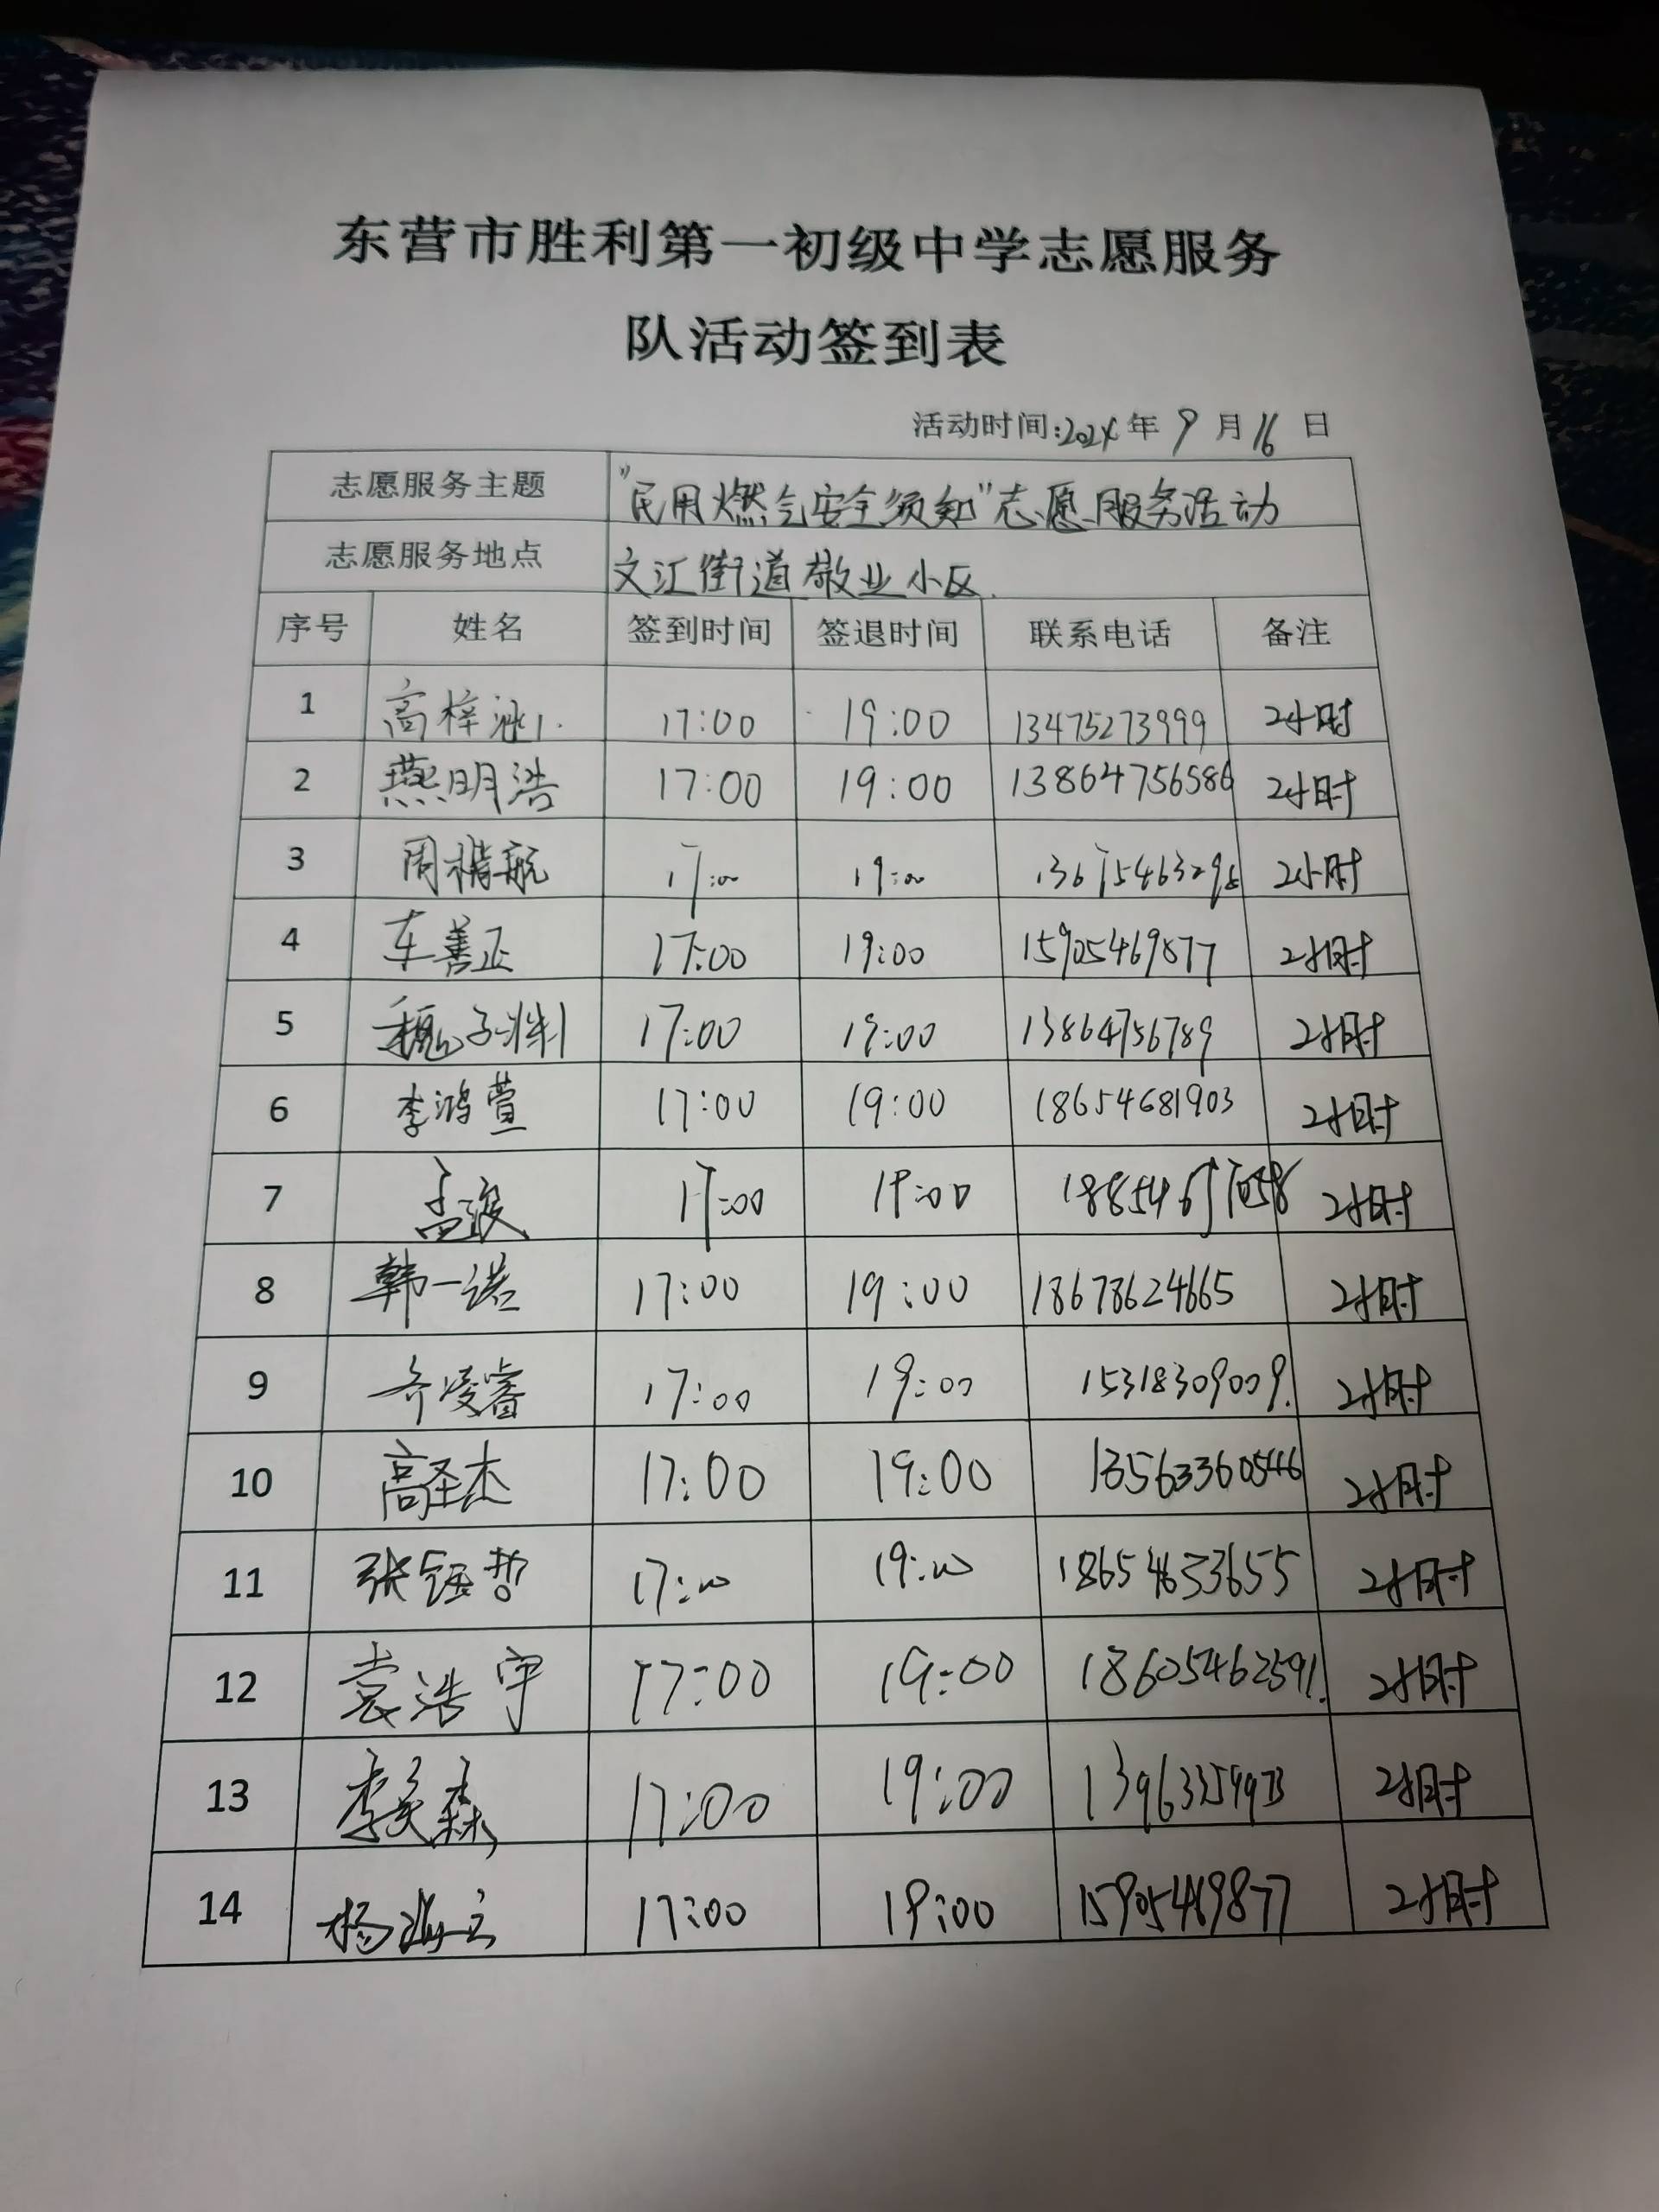 东营市胜利第一初级中学志愿服务
队活动签到表
活动时间:2024年9月16日
志愿服务主题 "民用燃气安全须知"志愿服务活动
志愿服务地点 文汇街道敬业小区.
序号 姓名 签到时间 签退时间 联系电话 备注
1 高梓涵 17:00 19:00 13475273999 2小时
2 燕明浩 17:00 19:00 13864756586 2小时
3 周楷航 17:00 19:00 2小时
4 车善正 17:00 19:00 15905469877 2小时
5 魏子 17:00 19:00 13864756789 2小时
6 李鸿萱 17:00 19:00 18654681903 2小时
7 孟 17:00 19:00 2小时
8 韩一诺 17:00 19:00 18678624665 2小时
9 齐凌睿 17:00 19:00 15318309009. 2小时
10 高圣杰 17:00 19:00 13563360546 2小时
11 张钰哲 17:00 19:00 18654633655 2小时
12 袁浩宇 17:00 19:00 18605462591. 2小时
13 李 森 17:00 19:00 2小时
14 杨 17:00 19:00 15905469877 2小时